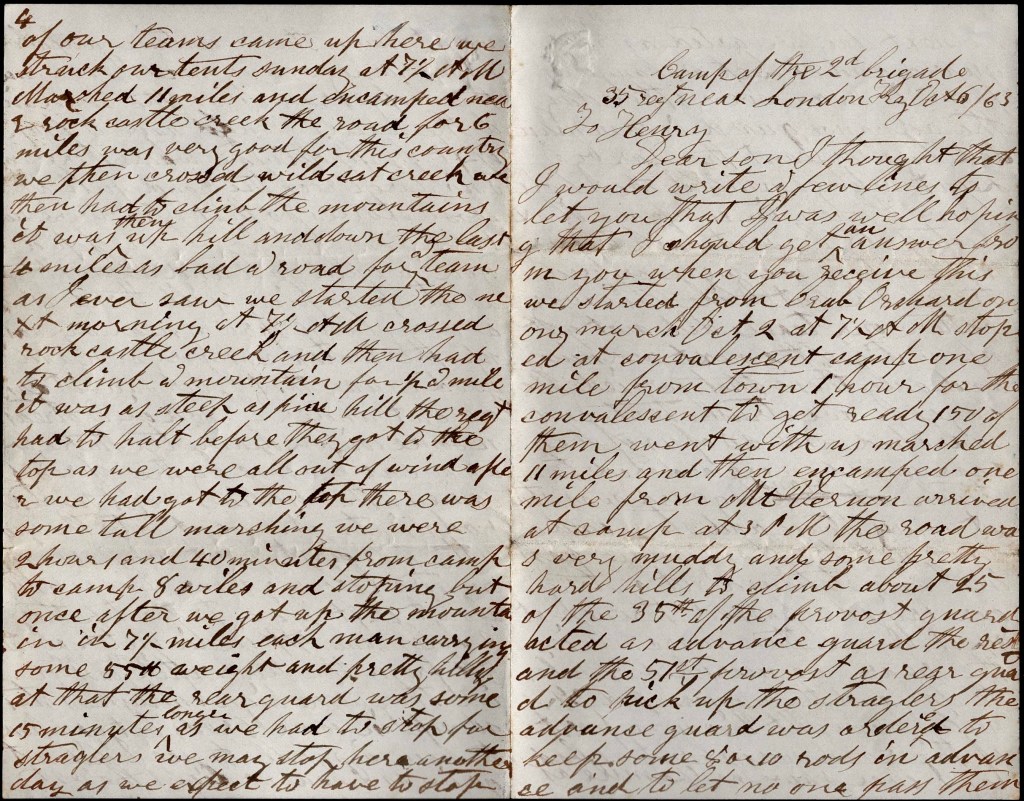 4
of our teams came up here we
struck our tents sunday at 7½ AM
Marched 11 miles and encamped nea
r rock castle creek the road for 6
miles was very good for this country
we then crossed wild cat creek we
then had to climb the mountains
it was then up hill and down the last
miles as bad a road for a team
as I ever saw we started the ne
xt morning at 7½ AM crossed
rock castle creek and then had
to climb a mountain for ½ a mile
it was as steep as hill the regt
had to halt before they got to the
top as we were all out of wind afte
r we had got to the top there was
some tall marshing we were
2 hours and 40 minutes from camp
to camp 8 miles and stoping but
once after we got up the mounta
in in 7½ miles each man carrying
some 55 lb weight and pretty hilly
at that the rear guard was some
15 minutes longer as we had to stop for
straglers we may stop here another
day as we expect to have to stop
Camp of the 2d brigade
35 regt near London Ky Oct 6/63
To Henry
Dear son I thought that
I would write a few lines to
let you that I was well hopin
g that I should get an answer fro
m you when you receive this
we started from Crab Orchard on
our march Oct 2 at 7½ AM stop
ed at convalescent camp one
mile from town 1 hour for the
convalescent to get ready 150 of
them went with us marched
11 miles and then encamped one
mile from Mt Vernon arrived
at camp at 3 PM the road wa
s very muddy and some pretty
hard hills to climb about 25
of the 35th of the provost guard
acted as advance guard the rest
and the 51st provost as rear gua
d to pick up the straglers the
advance guard was orderd to
keep some 8 or 10 rods in advan
ce and to let no one pass them